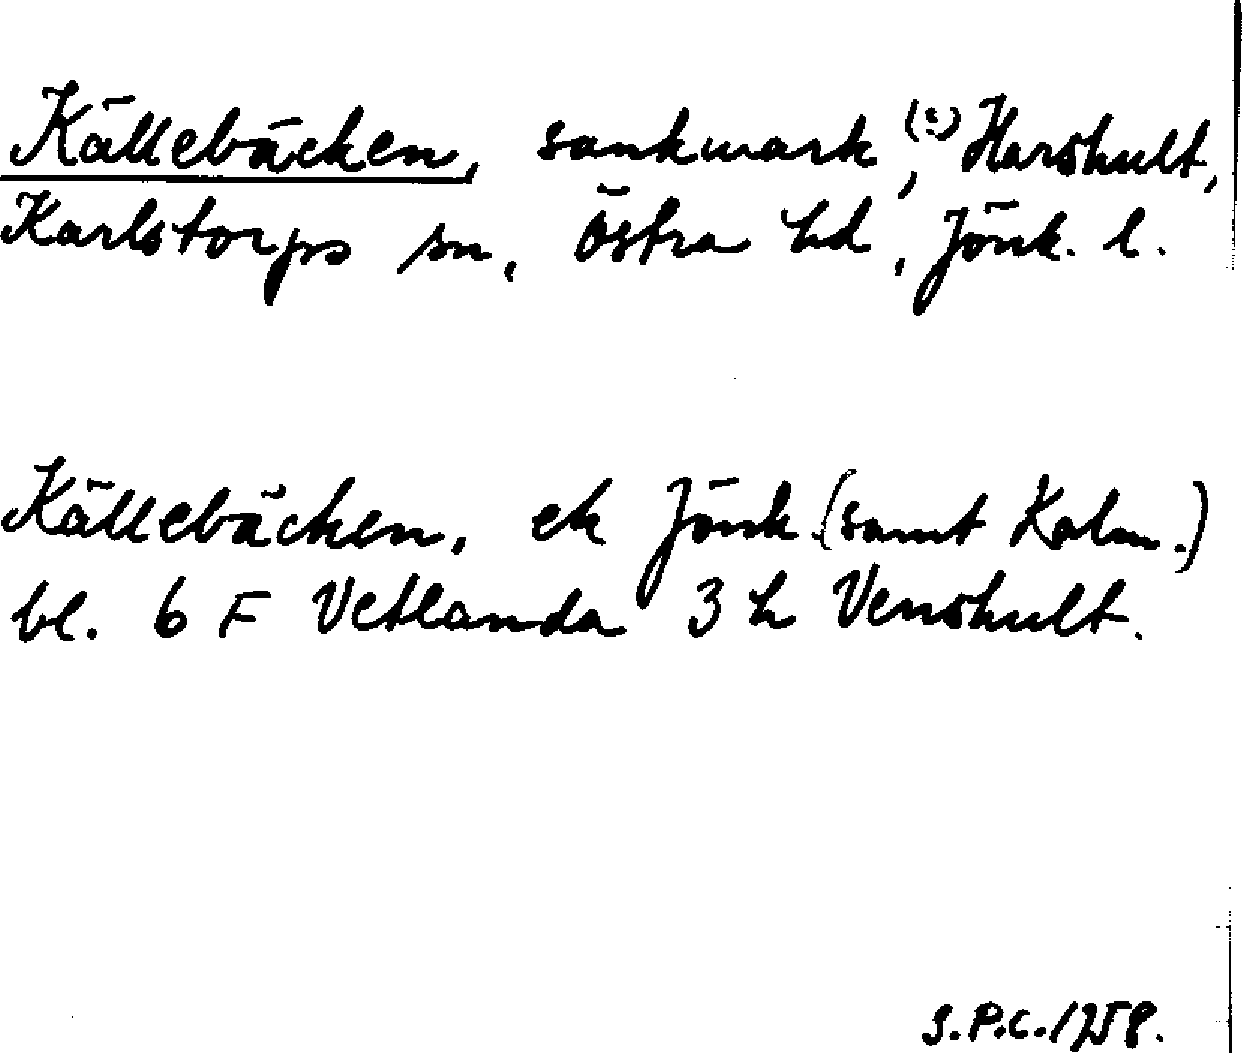 Källebäcken, sankmark (?), Harshult,
Karlstorps sn, Östra hd, Jönk. l.
Källebäcken, ek Jönk. (samt Kalm.)
bl. 6 F Vetlanda 3 h Venshult.